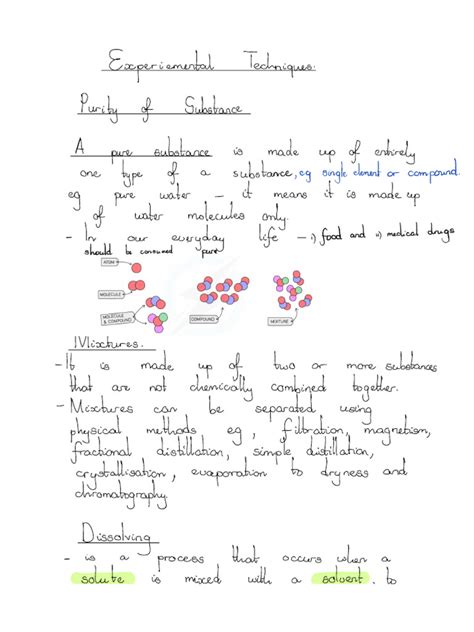 Experiemental Techniques.
Purity of Substance
A pure substance is made up of entirely
one type of a substance, eg single element or compound.
eg pure water – it means it is made up
of water molecules only.
- In our everyday life – i) food and ii) medical drugs
should be consumed pure
ATOM
MOLECULE
MOLECULE & COMPOUND
COMPOUND
MIXTURE
Mixtures.
- It is made up of two or more substances
that are not chemically combined together.
- Mixtures can be separated using
physical methods eg, filtration, magnetism,
fractional distillation, simple distillation,
crystallisation, evaporation to dryness and
chromatography
Dissolving
- is a process that occurs when a
solute is mixed with a solvent. to